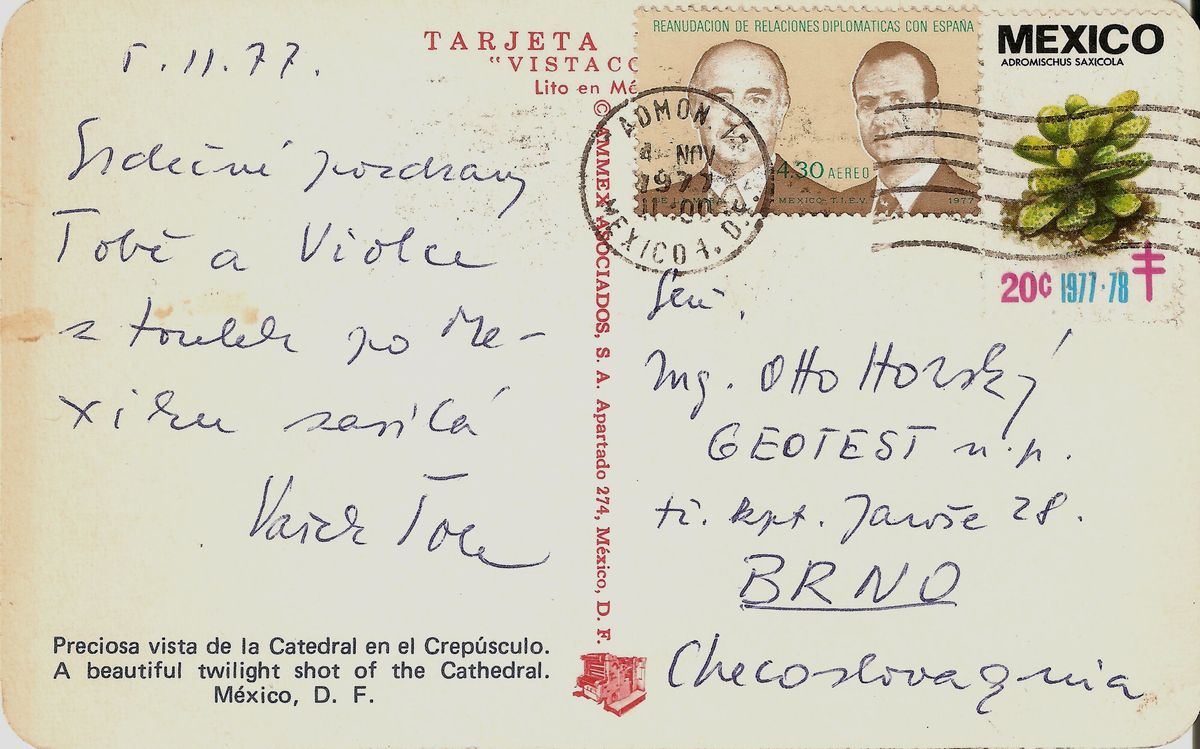 5.11.77.
Srdečné pozdravy
Tobě a Violce
z toulek po Me-
xiku zasílá
Vašek
Preciosa vista de la Catedral en el Crepúsculo.
A beautiful twilight shot of the Cathedral.
México, D. F.
TARJETA
"VISTACO
Lito en Mé
© AMMEX ASOCIADOS, S. A. Apartado 274, México, D. F.
REANUDACION DE RELACIONES DIPLOMATICAS CON ESPAÑA
4.30 AEREO
MEXICO-T.I.E.V. 1977
MEXICO
ADROMISCHUS SAXICOLA
20¢ 1977·78
ADMON.
4 NOV
1977
11-00
MEXICO 1, D.F.
Señ.
Ing. Otto Horský
GEOTEST n.p.
tř. kpt. Jaroše 28.
BRNO
Checoslovaquia